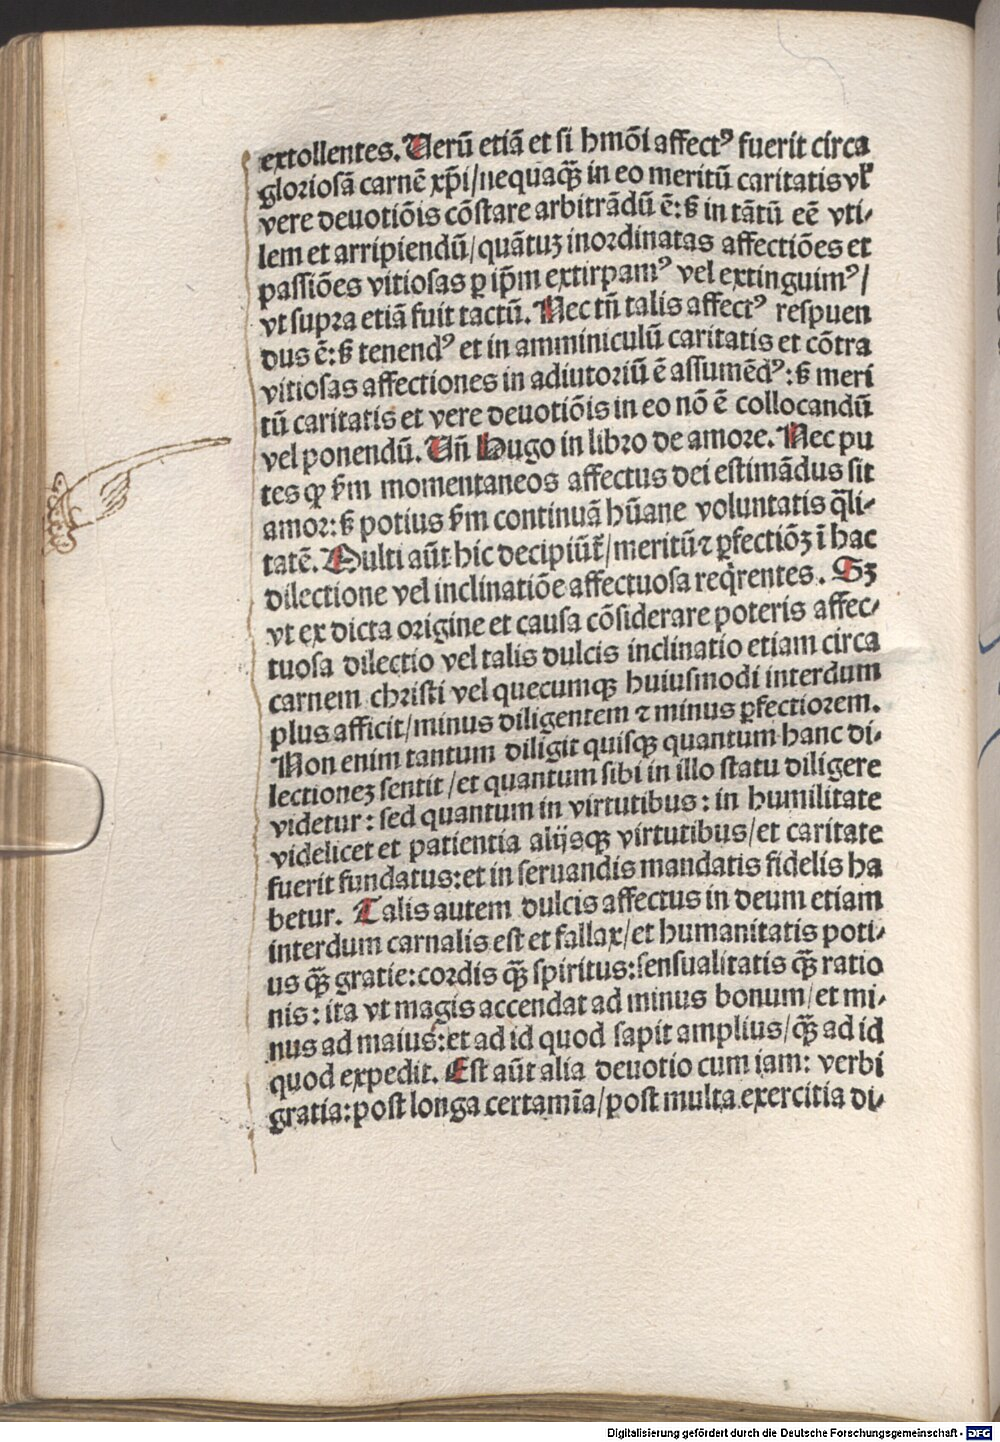 extollentes. Uerū etiā et si hmōi affectꝰ fuerit circa
gloriosā carnē xp̄i/nequaqȝ̄ in eo meritū caritatis vl̕
vere deuotiōis cōstare arbitrādū ē: sꝫ in tātū eē vti⸗
lem et arripiendū/quātuȝ inordinatas affectiōes et
passiōes vitiosas ꝑ ip̄m extirpamꝰ vel extinguimꝰ/
vt supra etiā fuit tactū. Nec tn̄ talis affectꝰ respuen
dus ē: sꝫ tenendꝰ et in amminiculū caritatis et cōtra
vitiosas affectiones in adiutoriū ē assumēdꝰ: sꝫ meri
tū caritatis et vere deuotiōis in eo nō ē collocandū
vel ponendū. Un̄ Hugo in libro de amore. Nec pu
tes ꝙ s̄m momentaneos affectus dei estimādus sit
amor: sꝫ potius s̄m continuā hūane voluntatis q̄li⸗
tatē. Multi aūt hic decipiūt̕/meritū ⁊ ꝑfectiōȝ ī hac
dilectione vel inclinatiōe affectuosa reqͥrentes. Sȝ
vt ex dicta origine et causa cōsiderare poteris affec⸗
tuosa dilectio vel talis dulcis inclinatio etiam circa
carnem christi vel quecumqȝ huiusmodi interdum
plus afficit/minus diligentem ⁊ minus ꝑfectiorem.
Non enim tantum diligit quisqȝ quantum hanc di⸗
lectioneȝ sentit/et quantum sibi in illo statu diligere
videtur: sed quantum in virtutibus: in humilitate
videlicet et patientia alijsqȝ virtutibus/et caritate
fuerit fundatus: et in seruandis mandatis fidelis ha
betur. Talis autem dulcis affectus in deum etiam
interdum carnalis est et fallax/et humanitatis poti⸗
us qȝ̄ gratie: cordis qȝ̄ spiritus: sensualitatis qȝ̄ ratio
nis: ita vt magis accendat ad minus bonum/et mi⸗
nus ad maius: et ad id quod sapit amplius/qȝ̄ ad id
quod expedit. Est aūt alia deuotio cum iam: verbi
gratia: post longa certamīa/post multa exercitia di⸗
Digitalisierung gefördert durch die Deutsche Forschungsgemeinschaft - DFG